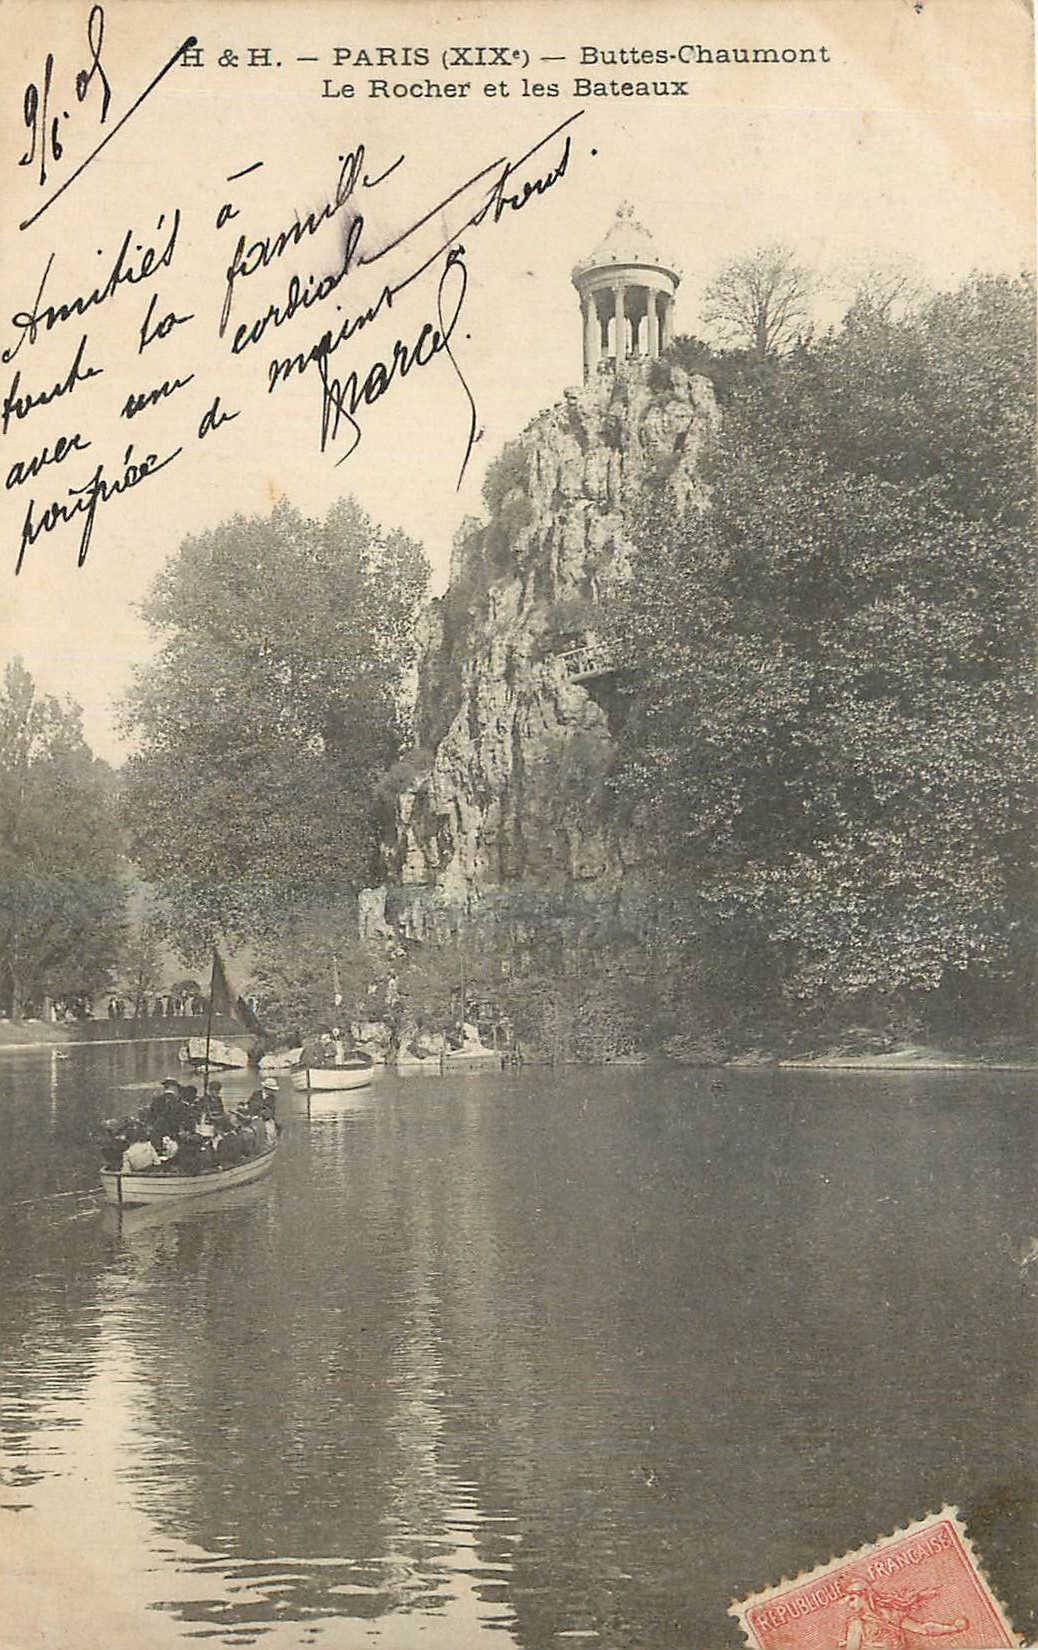 H & H. — PARIS (XIXᵉ) — Buttes-Chaumont
Le Rocher et les Bateaux
9/6. 05
Amitiés à
toute la famille
avec une cordiale
poignée de mains à tous.
Marcel.
REPUBLIQUE FRANÇAISE